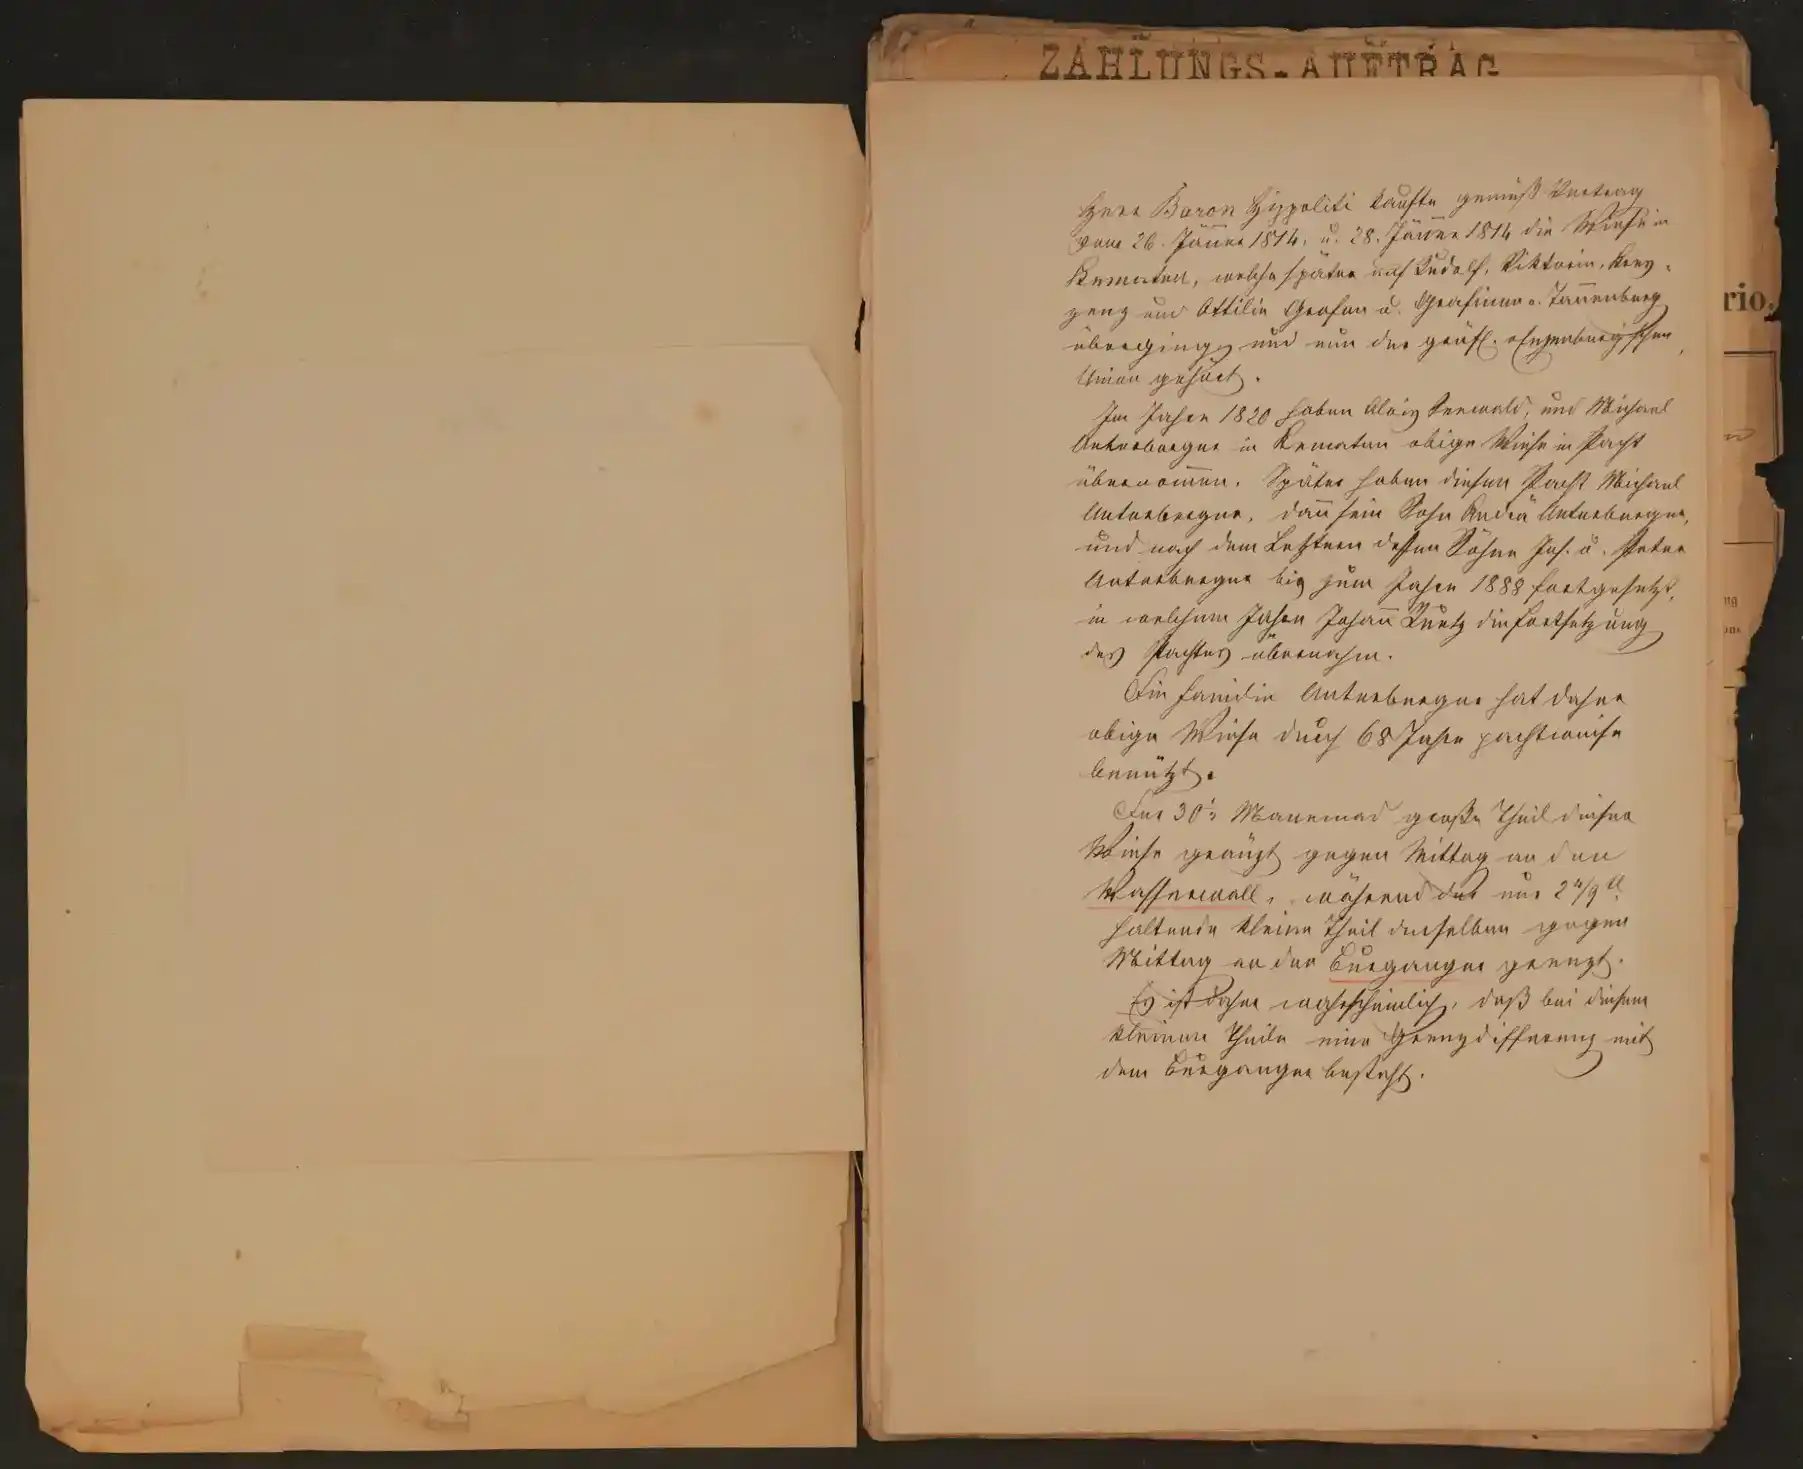 ZAHLUNGS-AUFTRAG
rio.
Herr Baron Hippoliti kaufte gemäß Vertrag
vom 26. Jänner 1814, u. 28. Jänner 1814 die Wiese in
Kematen, welche später auf Rudolf, Viktoria, Kres-
zenz und Ottilia Grafen u. Gräfinnen v. Tannenberg
überging und nun der gräfl. Enzenbergischen
gehört.
Im Jahre 1820 haben Alois Seewald, und Michael
Anterberger in Kematen obige Wiese in Pacht
übernom̄en. Später haben diesen Pacht Michael
Anterberger, dan̄ sein Sohn Andrä Anterberger,
und nach dem Letztern dessen Söhne Joh. u. Peter
Anterberger bis zum Jahre 1888 fortgesetzt,
in welchem Jahre Johan̄ die Fortsetzung
des Pachtes übernahm.
Die Familie Anterberger hat daher
obige Wiese durch 68 Jahre pachtweise
benützt.
Der 30 Mannmad große Theil dieser
Wiese gränzt gegen Mittag an den
Wasserwall, während der nur 2
haltende kleine Theil derselben gegen
Mittag an der Burganger grenzt.
Es ist daher wahrscheinlich, daß bei diesem
kleinen Theile eine Grenzdifferenz mit
dem Burganger besteht.